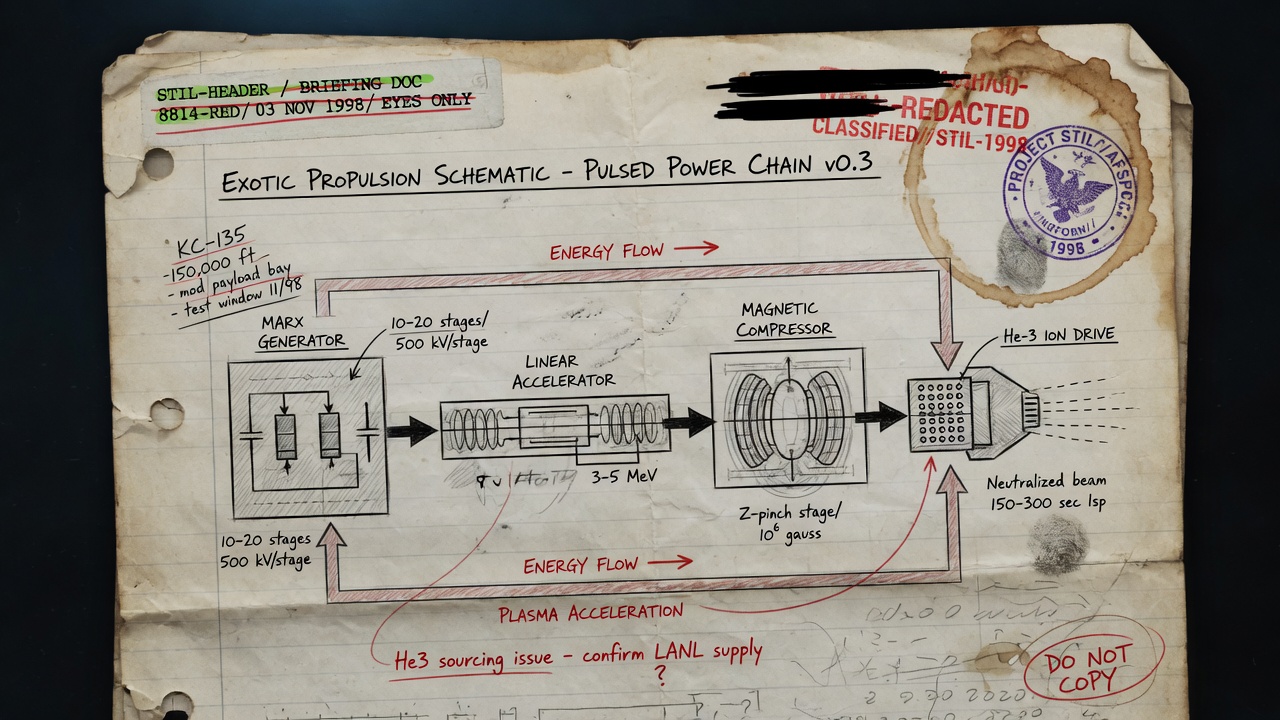 STIL-HEADER / BRIEFING DOC
8814-RED/ 03 NOV 1998/ EYES ONLY
REDACTED
CLASSIFIED//STIL-1998
PROJECT STIL/AFSPC
1998
EXOTIC PROPULSION SCHEMATIC – PULSED POWER CHAIN v0.3
KC-135
-150,000 ft
- mod payload bay
- test window 11/98
ENERGY FLOW
MARX
GENERATOR
10-20 stages/
500 kV/stage
LINEAR
ACCELERATOR
MAGNETIC
COMPRESSOR
He-3 ION DRIVE
3-5 MeV
Z-pinch stage/
10⁶ gauss
Neutralized beam
150-300 sec Isp
10-20 stages
500 kV/stage
ENERGY FLOW
PLASMA ACCELERATION
He3 sourcing issue – confirm LANL supply
?
DO NOT
COPY